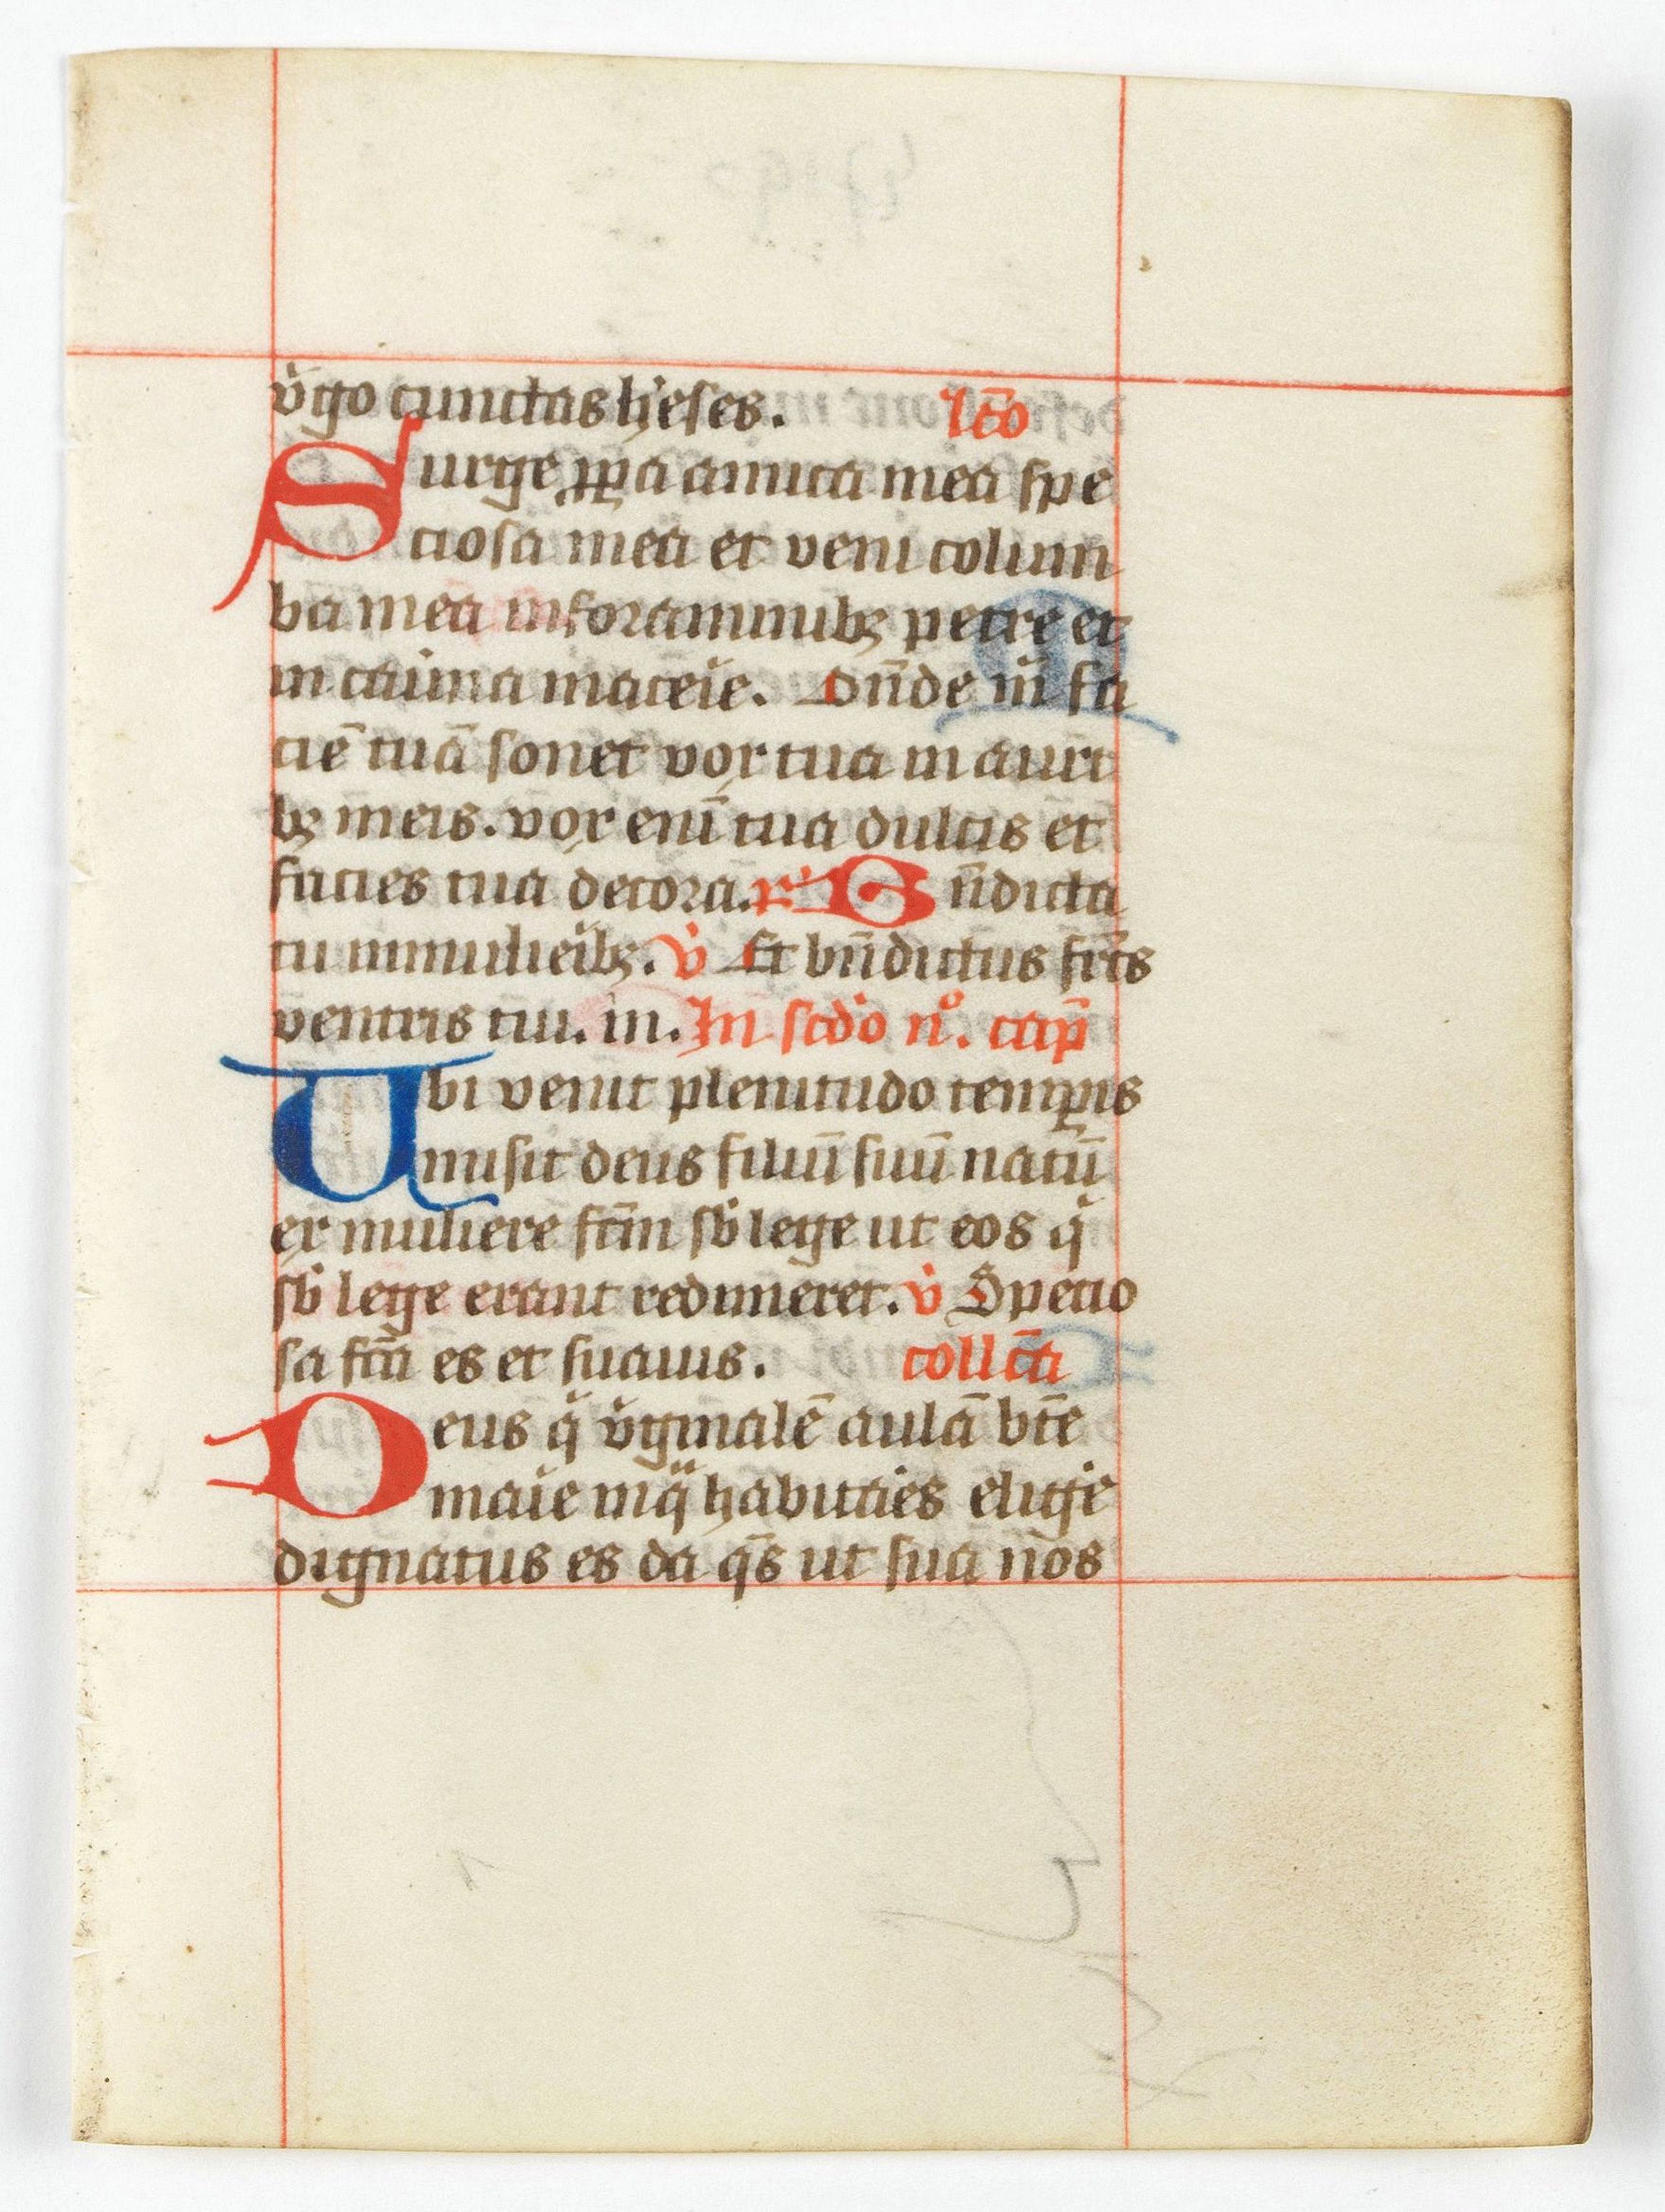 v̾go cunctas h̾eses. lc̄o
Surge ꝓꝑa amica mea spe
ciosa mea et veni colum
ba mea in foraminibꝫ petre et
in cauerna maceie. Ond̄e m̄ fa
ciē tuā sonet vox tua in auri
bꝫ meis. vox enī tua dulcis et
facies tua decora. r̾ Bn̄dicta
tu in mulieībꝫ. v̾ Et bn̄dictus frc̄s
ventris tui. in. In scdo nº. cap̄
Ubi venit plenitudo temꝑis
misit deus filiū suū natū
ex muliere fc̄m sb̾ lege ut eos q̾
sb̾ lege erant redimeret. v̾ Specio
sa fc̄a es et suauis. collc̄a
Deus q̾ v̾ginalē aulā bt̄e
maīe in q̾ habitaes elige
dignatus es da qs̄ ut sua nos